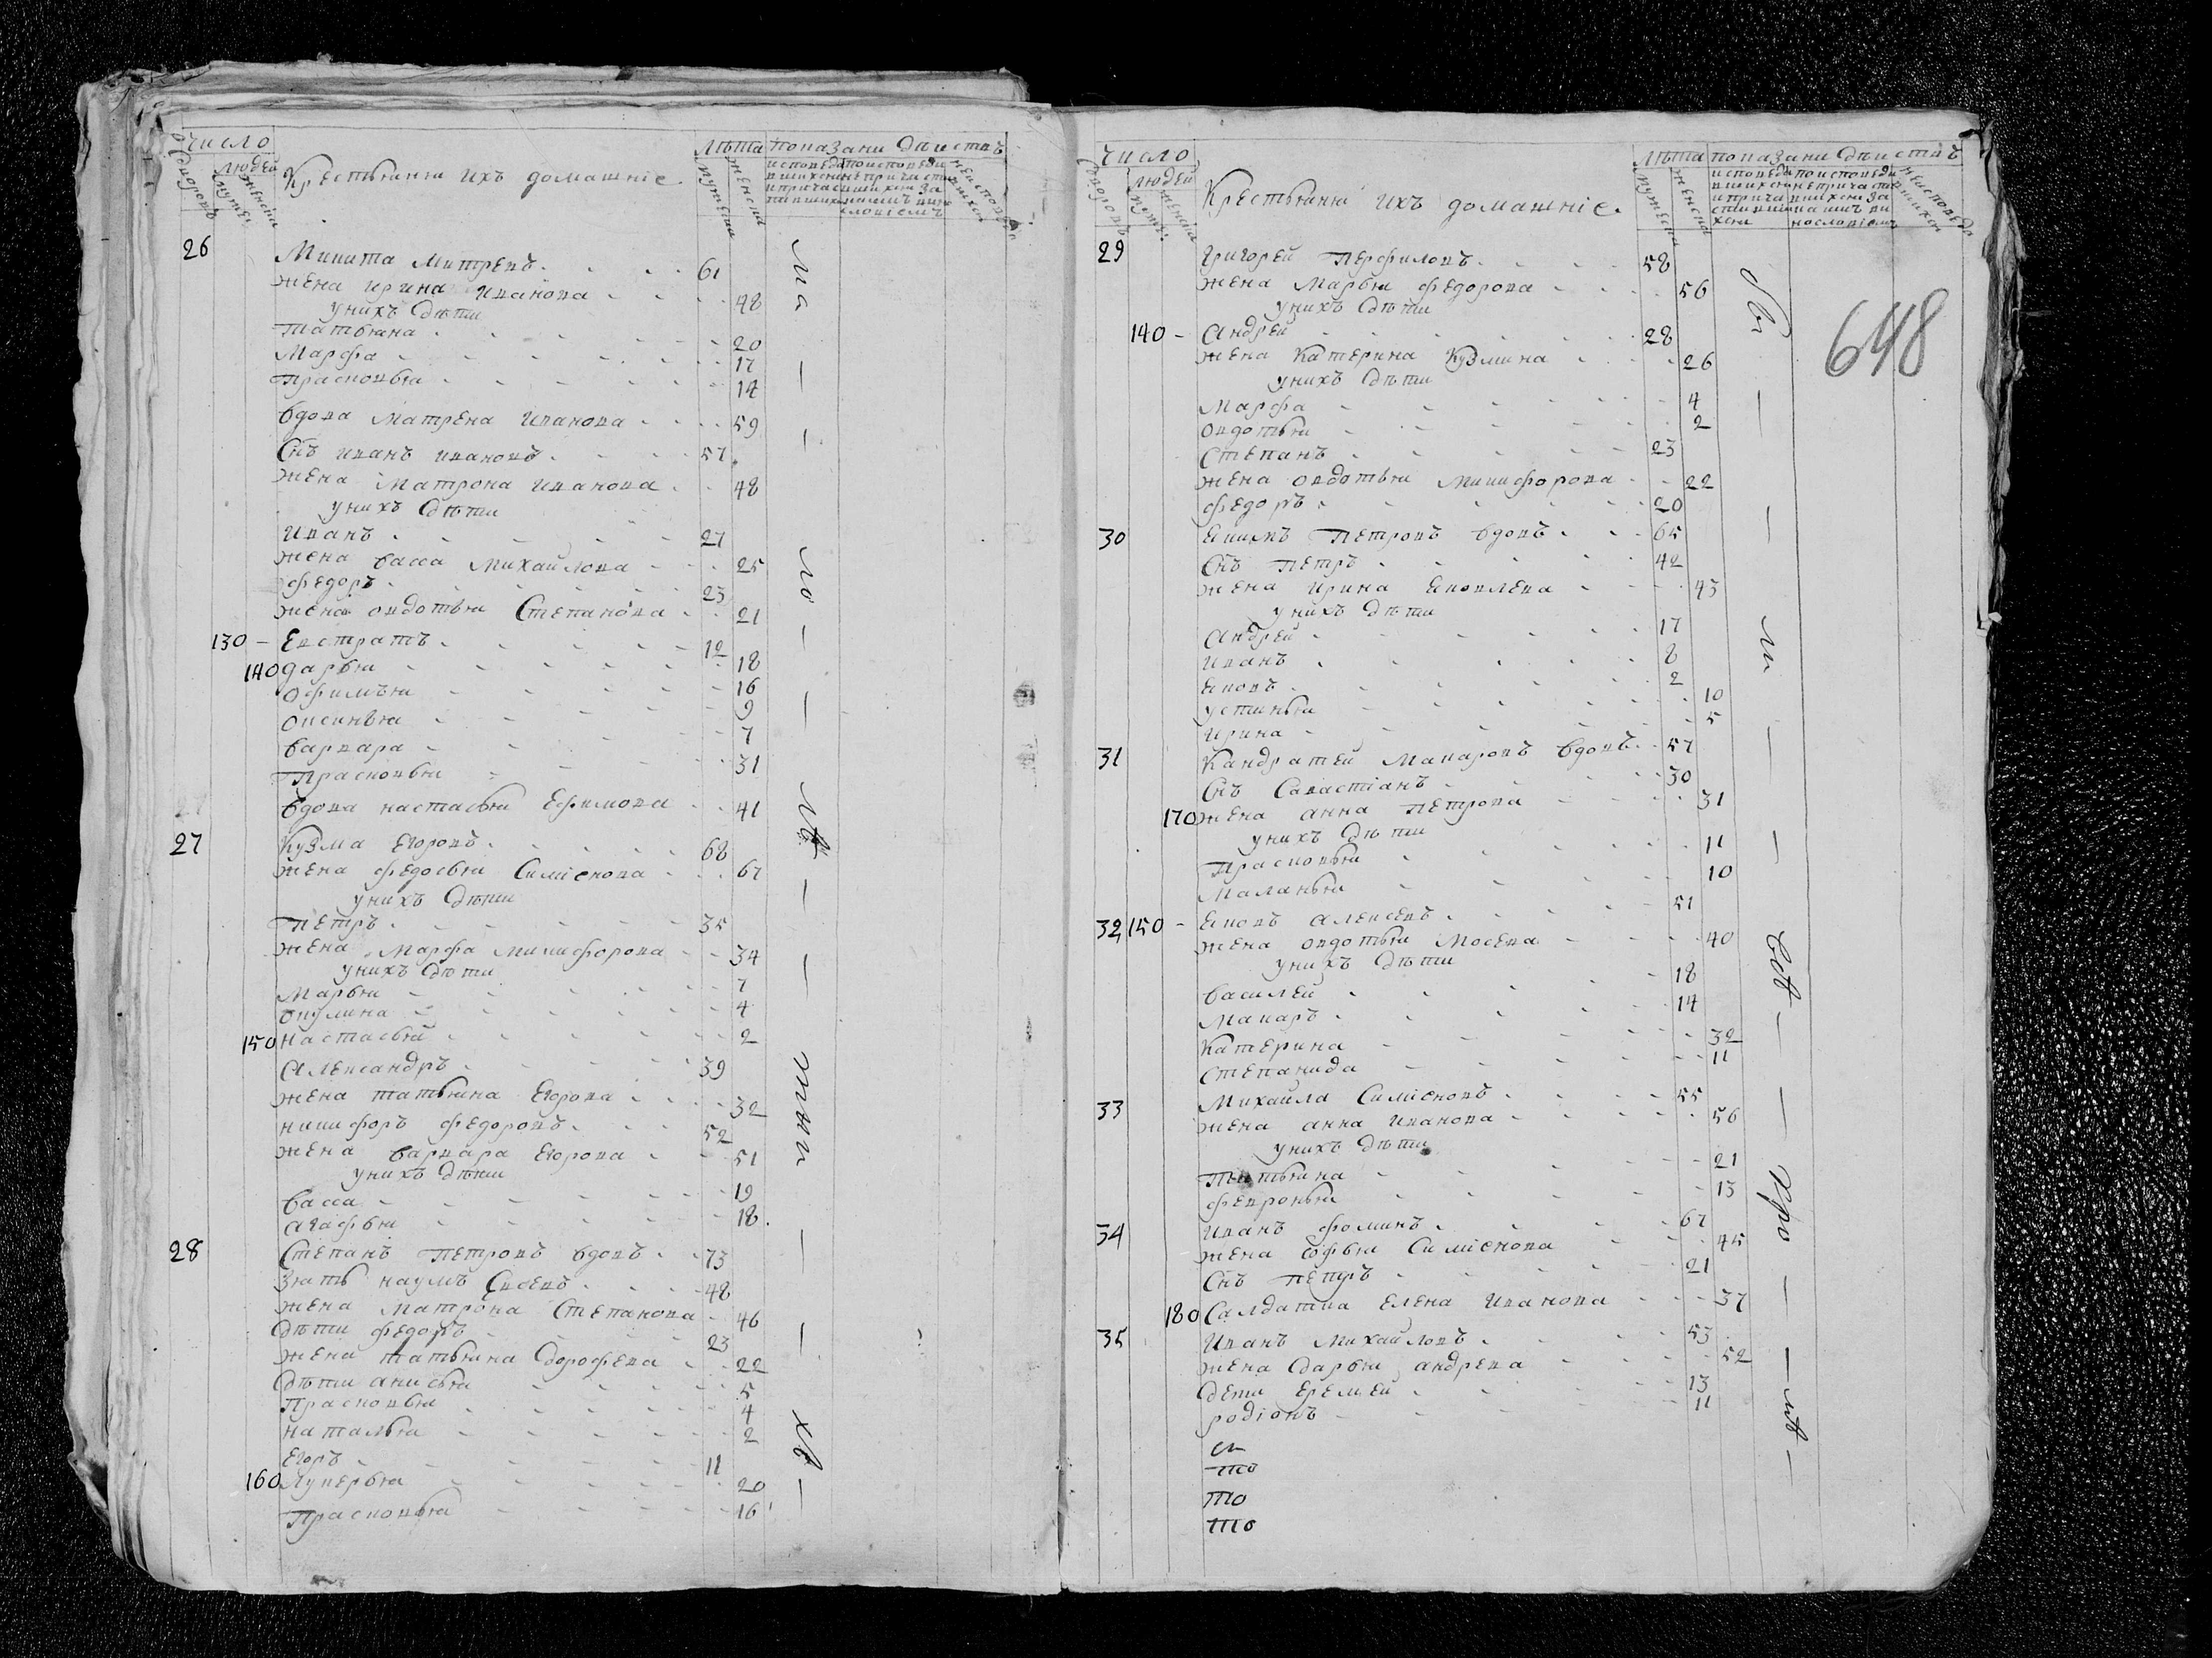 число
дворовъ
людей
мужес
женска
Крестьяния ихъ домашніе
лѣта
мужеска
женска
показани дѣиствъ
26
Микита Митревъ 61
жена ирина иванова 48
унихъ дѣти
татьяна 20
Марфа 17
Прасковья 14
вдова матрена иванова 59
Снъ иванъ ивановъ 57
жена Матрона иванова 48
унихъ дѣти
иванъ 27
жена васса михаилова 25
Федоръ 23
жена овдотья Степанова 21
130 – Евстратъ 12
140 дарья 18
офимъя 16
оксинья 9
варвара 7
Прасковья 31
вдова настасья Ефимова 41
27 Кузма Егоровъ 68
жена федосья Симіонова 67
унихъ дѣти
Петръ 35
жена марфа микифорова 34
унихъ дѣти
марья 7
окулина 4
150 настасья 2
Александръ 39
жена татьяна Егорова 32
никифоръ федоровъ 52
жена варвара Егорова 51
унихъ дѣти
васса 19
агафья 18
28 Степанъ Петровъ вдовъ 73
Зять наумъ 48
жена матрона Степанова 46
дѣти федоръ 23
жена татьяна дорофева 22
дѣти анисья 5
Прасковья 4
наталья 2
Егоръ 11
160 Лукерья 20
Прасковья 16
число
дворовъ
людей
мужес
женска
Крестьяния ихъ домашніе
лѣта
мужеска
женска
показани дѣиствъ
648
29
Григорей Перфиловъ 58
жена Марья федорова 56
унихъ дѣти
140 – Андрей 28
жена Катерина Кузмина 26
унихъ дѣти
Марфа 4
овдотья 2
Степанъ 23
жена овдотья микифорова 22
федоръ 20
30 Екимъ Петровъ вдовъ 65
Снъ Петръ 42
жена ирина Яковлева 43
унихъ дѣти
Андрей 17
иванъ 8
Яковъ 2
устинья 10
ирина 5
31 Кандратей макаровъ вдовъ 57
Снъ Савастіанъ 30
170 жена анна Петрова 31
унихъ дѣти
Прасковья 11
Маланья 10
32 150 – Яковъ алексевъ 51
жена овдотья мосева 40
унихъ дѣти
василей 18
макаръ 14
Катерина 32
Степанида 11
33 Михайла Симіоновъ 55
жена анна иванова 56
унихъ дѣти
Татьяна 21
февронья 13
34 иванъ фоминъ 67
жена софья Симіонова 45
Снъ петръ 21
180 Салдатка елена иванова 37
35 иванъ михаиловъ 53
жена дарья андрева 52
дети Еремей 13
родіонъ 11
то
то
то